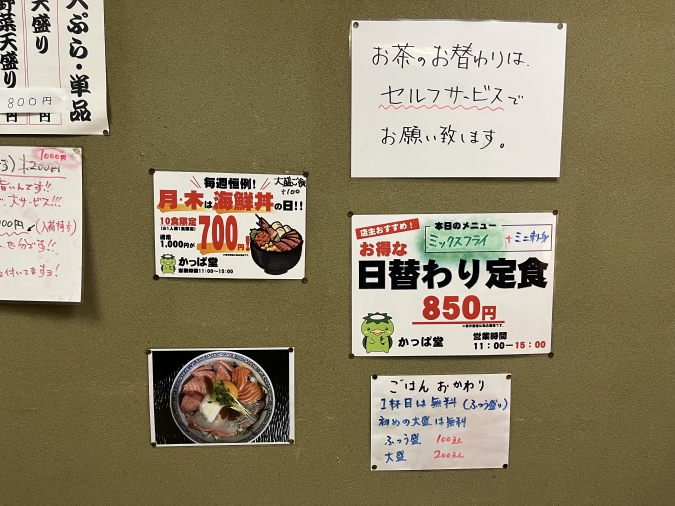 天ぷら・単品
天盛り
野菜天盛り
800円
円
1000円
1,200円
大サービス!!!
(入荷待ち)
付いてますヨ!
お茶のお替わりは、
セルフサービスで
お願い致します。
毎週恒例!
大盛ご飯
+100
月・木は海鮮丼の日!!
10食限定
(お1人様1食限定)
通常
1,000円が
700円!
かっぱ堂
営業時間11:00~15:00
店主おすすめ!
本日のメニュー
お得な
ミックスフライ
日替わり定食
850円
かっぱ堂
営業時間
11:00-15:00
ごはん おかわり
1杯目は無料(ふつう盛り)
初めの大盛は無料
ふつう盛 100えん
大盛 200えん